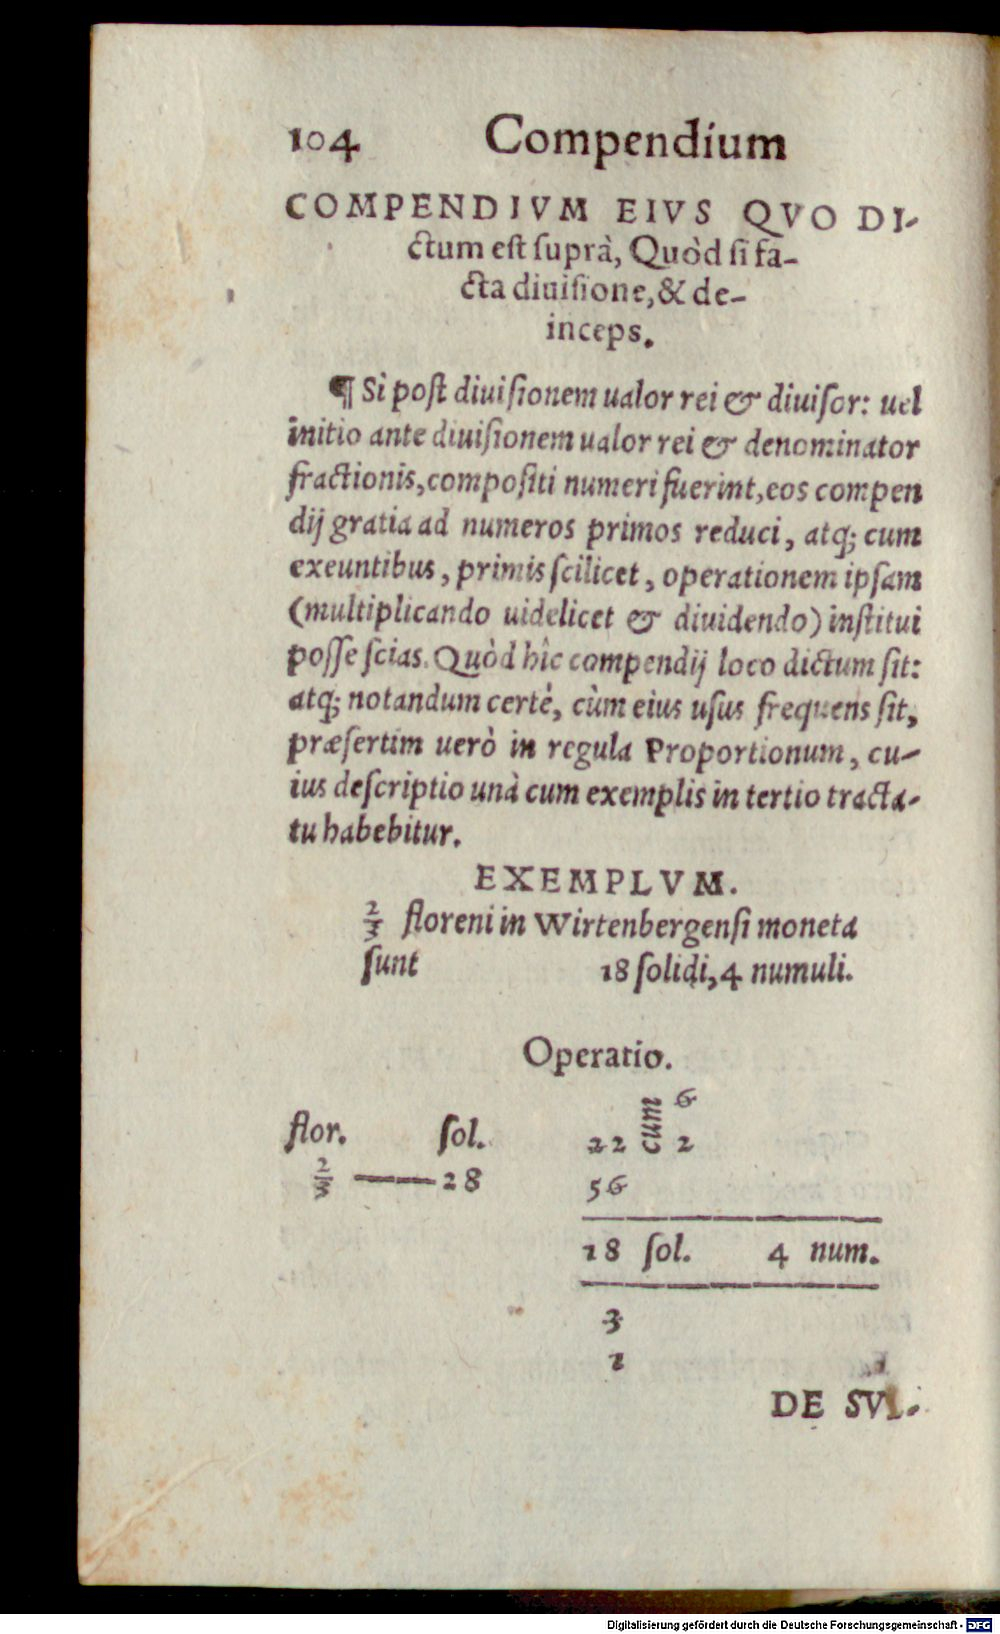 104 Compendium
COMPENDIVM EIVS QVO DI-
ctum est suprà, Quòd si fa-
cta diuisione, & de-
inceps.
¶ Si post diuisionem ualor rei & diuisor: uel
initio ante diuisionem ualor rei & denominator
fractionis, compositi numeri fuerint, eos compen
dij gratia ad numeros primos reduci, atq; cum
exeuntibus, primis scilicet, operationem ipsam
(multiplicando uidelicet & diuidendo) institui
posse scias. Quòd hîc compendij loco dictum sit:
atq; notandum certè, cùm eius usus frequens sit,
præsertim uerò in regula Proportionum, cu-
ius descriptio unà cum exemplis in tertio tracta-
tu habebitur.
EXEMPLVM.
2/3 floreni in Wirtenbergensi moneta
sunt 18 solidi, 4 numuli.
Operatio.
flor. sol. 22 cum 6 2
2/3 —— 28 56
18 sol. 4 num.
3
1
DE SVI-
Digitalisierung gefördert durch die Deutsche Forschungsgemeinschaft - DFG